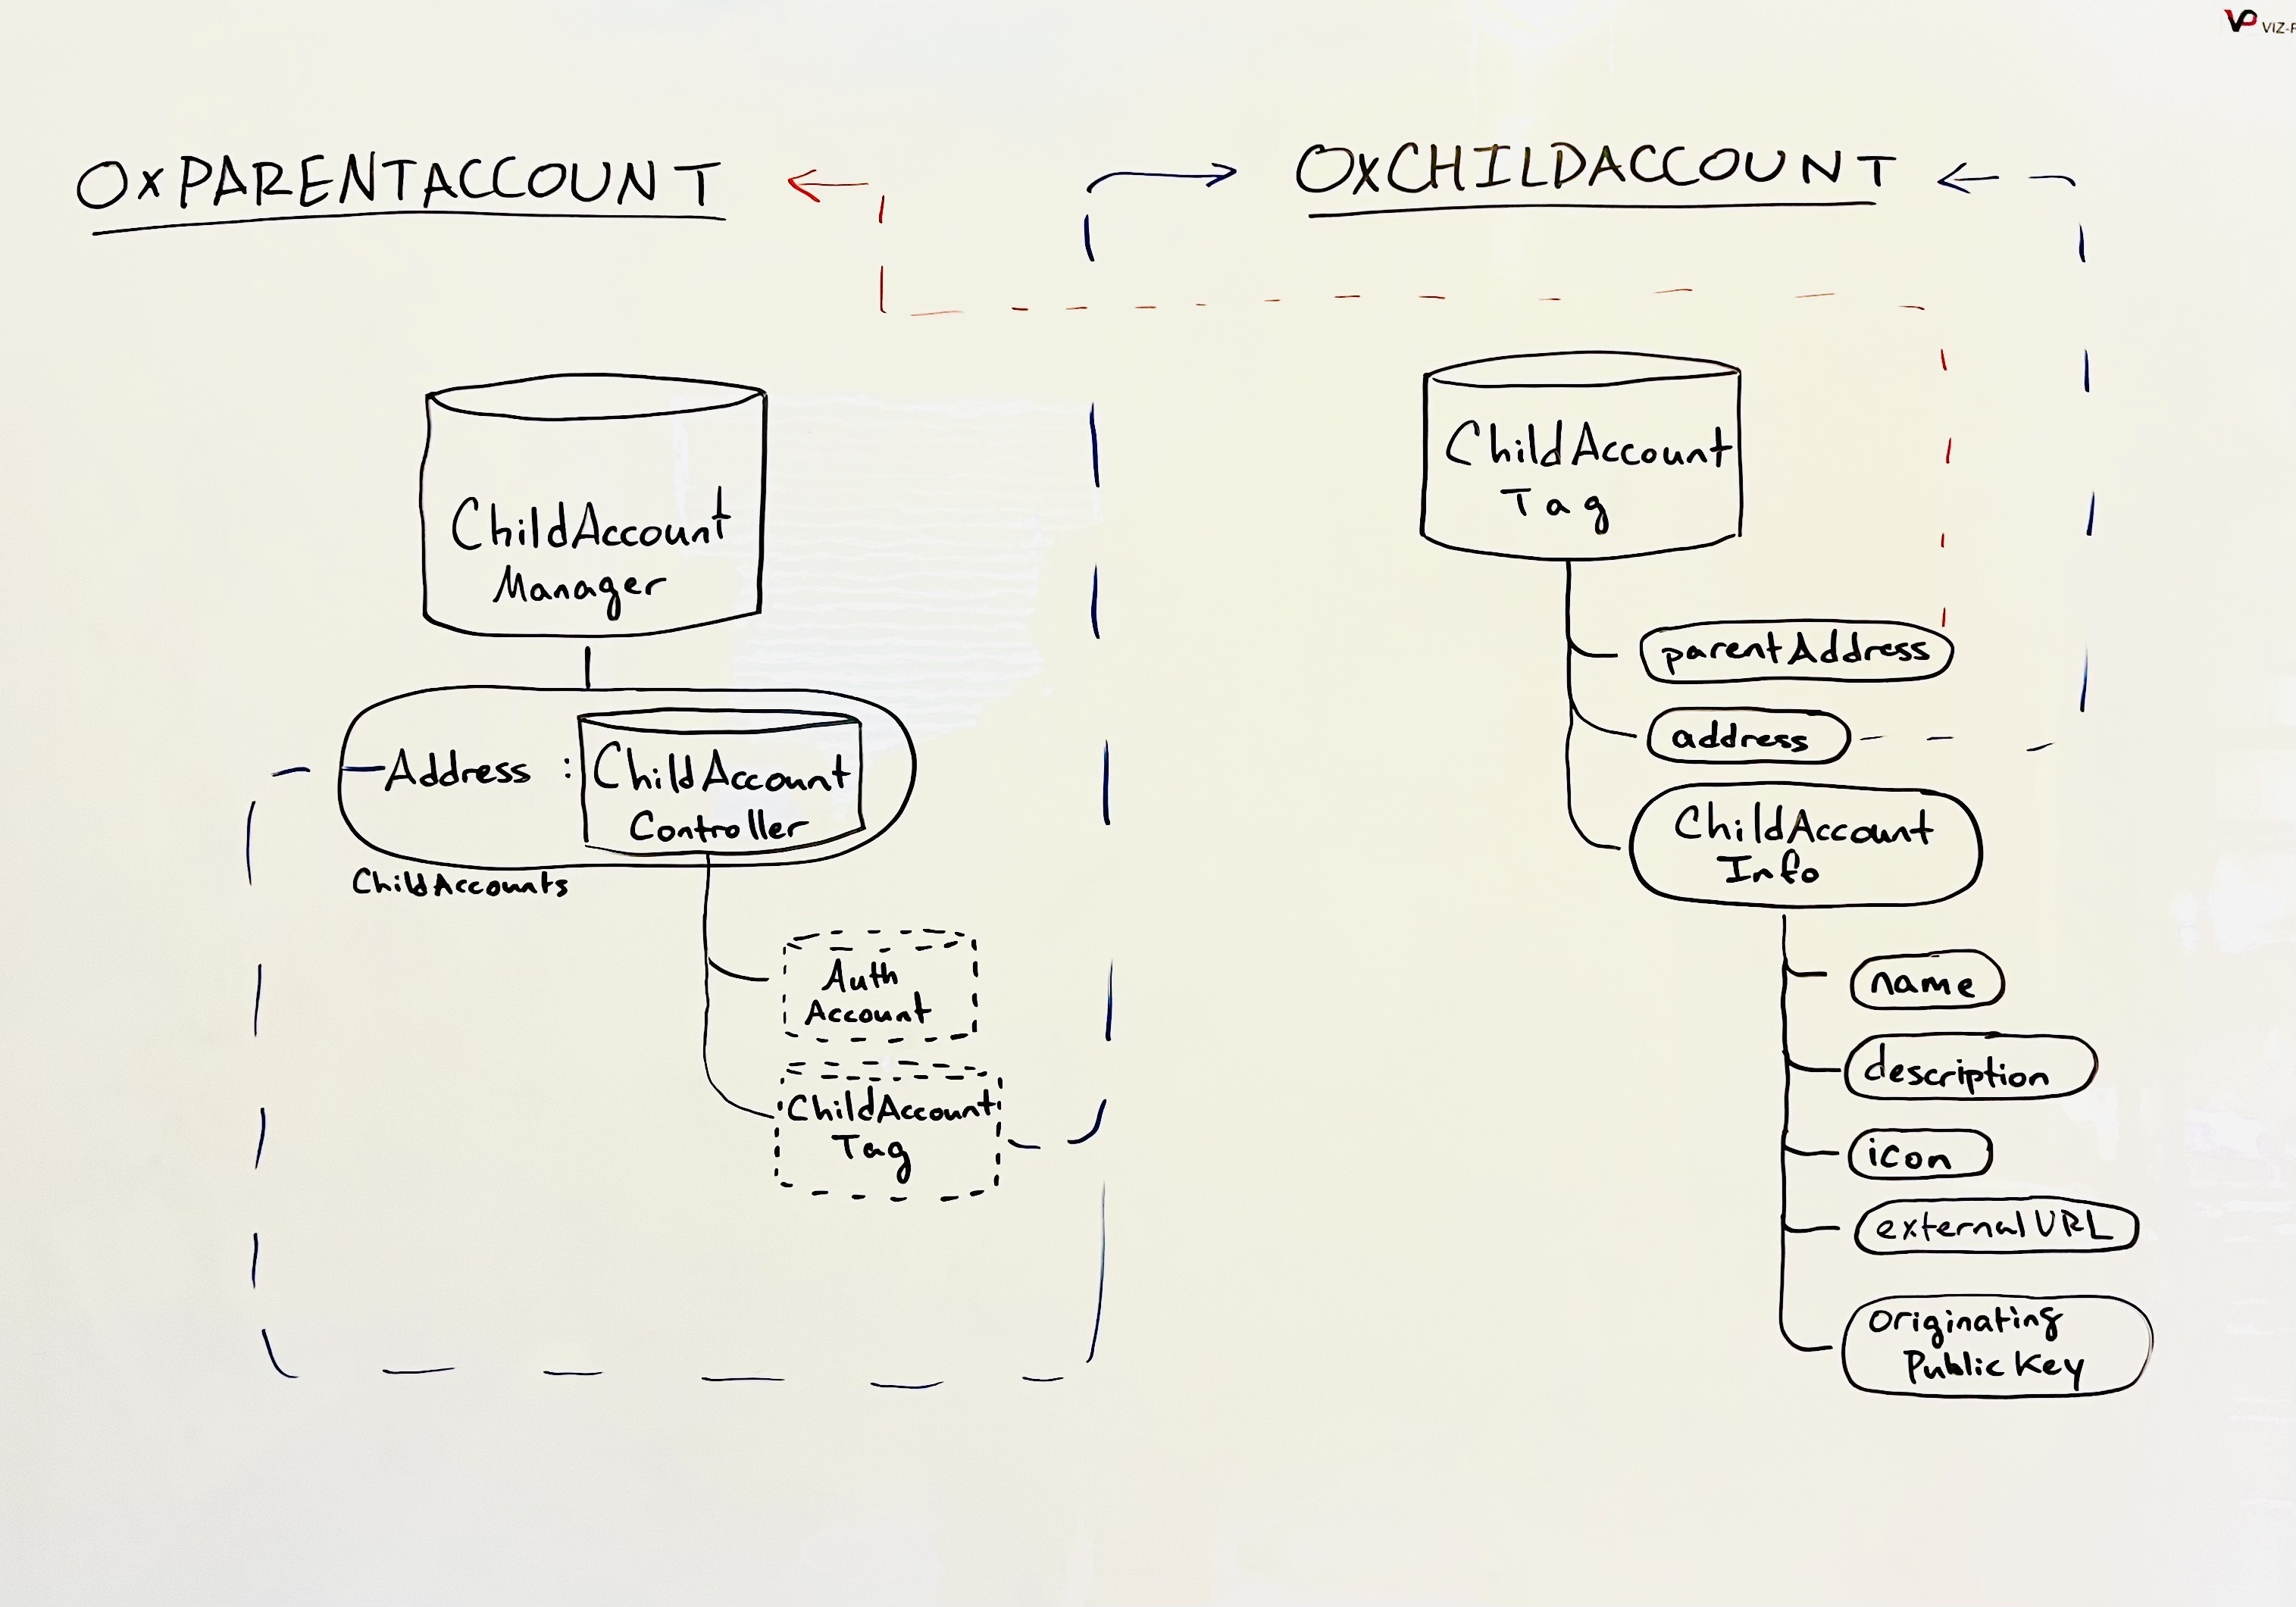 VIZ-
0xPARENTACCOUNT
0xCHILDACCOUNT
ChildAccount
Manager
Address : ChildAccount
Controller
ChildAccounts
Auth
Account
ChildAccount
Tag
ChildAccount
Tag
parentAddress
address
ChildAccount
Info
name
description
icon
externalURL
originating
Public Key